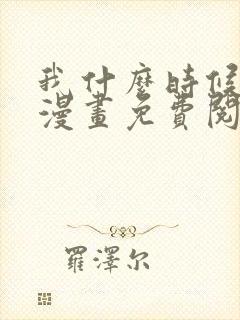 我什麼時候
漫畫免費閱
羅澤尔